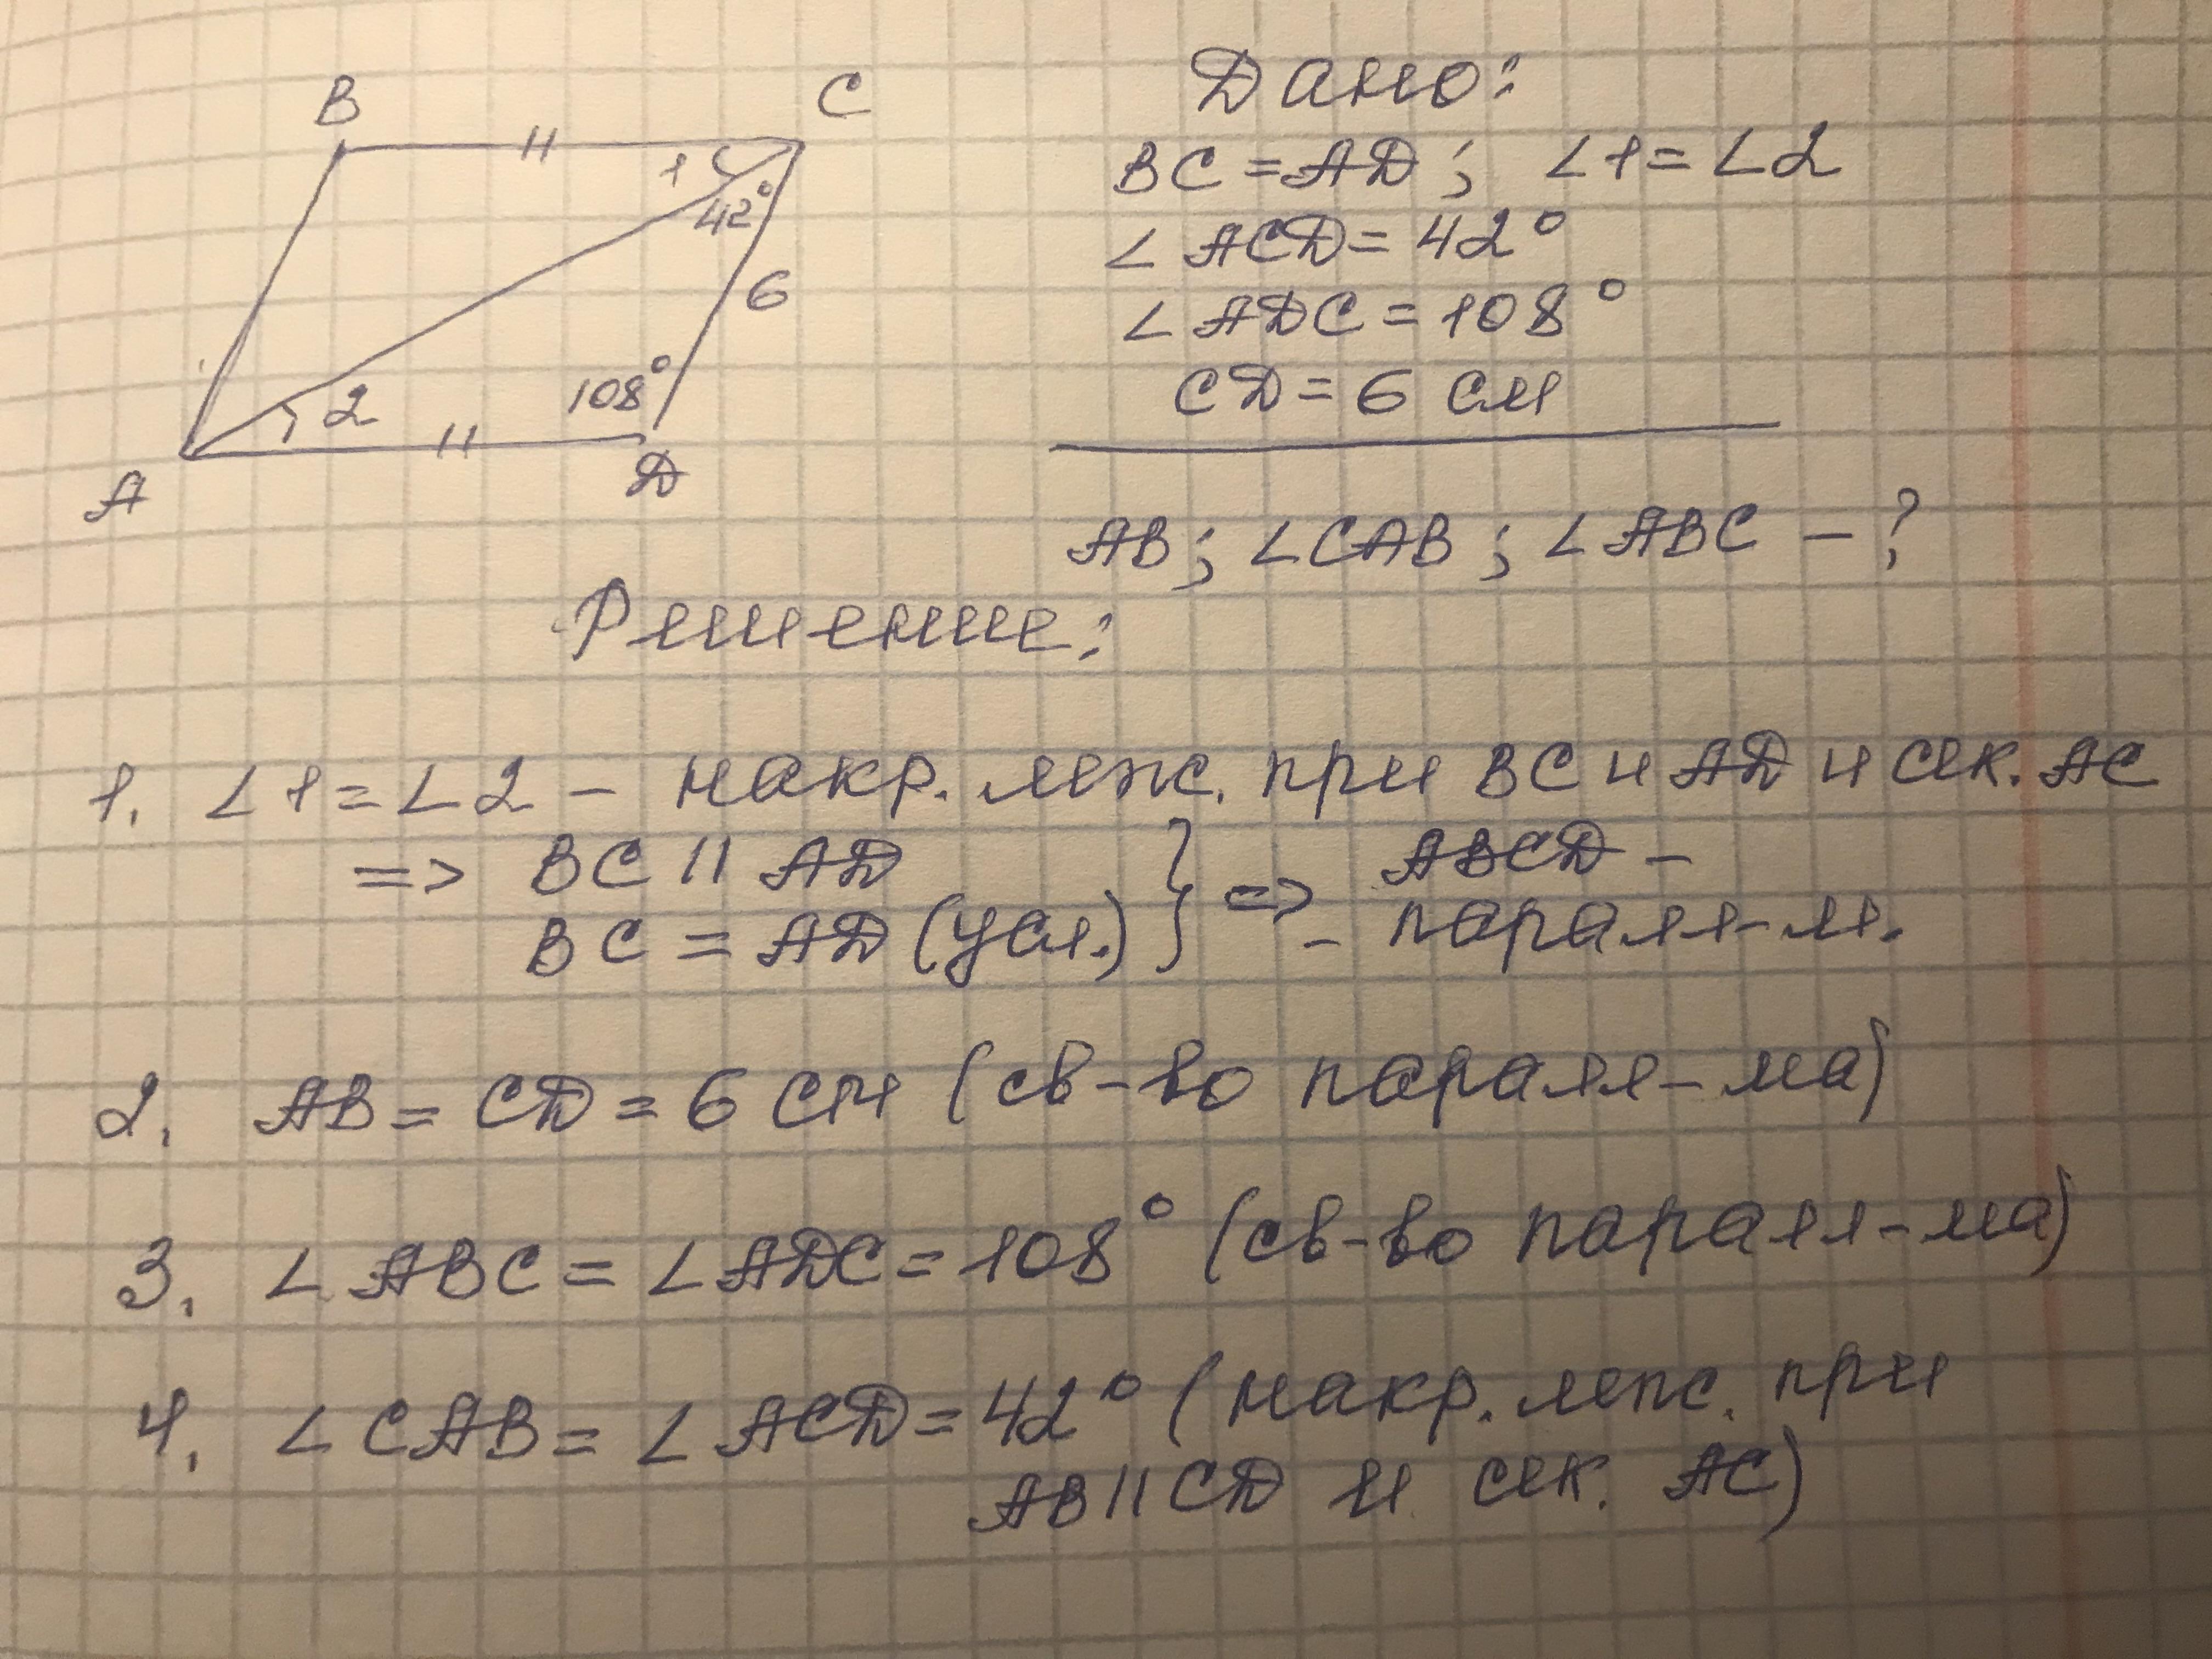 B
C
1
42°
6
2
108°
A
D
Дано:
BC = AD; ∠1 = ∠2
∠ACD = 42°
∠ADC = 108°
CD = 6 см
AB; ∠CAB; ∠ABC - ?
Решение:
1. ∠1 = ∠2 - накр. леж. при BC и AD и сек. AC
=> BC || AD
BC = AD (усл.) } => ABCD -
- паралл-м.
2. AB = CD = 6 см (св-во паралл-ма)
3. ∠ABC = ∠ADC = 108° (св-во паралл-ма)
4. ∠CAB = ∠ACD = 42° (накр. леж. при
AB || CD и сек. AC)